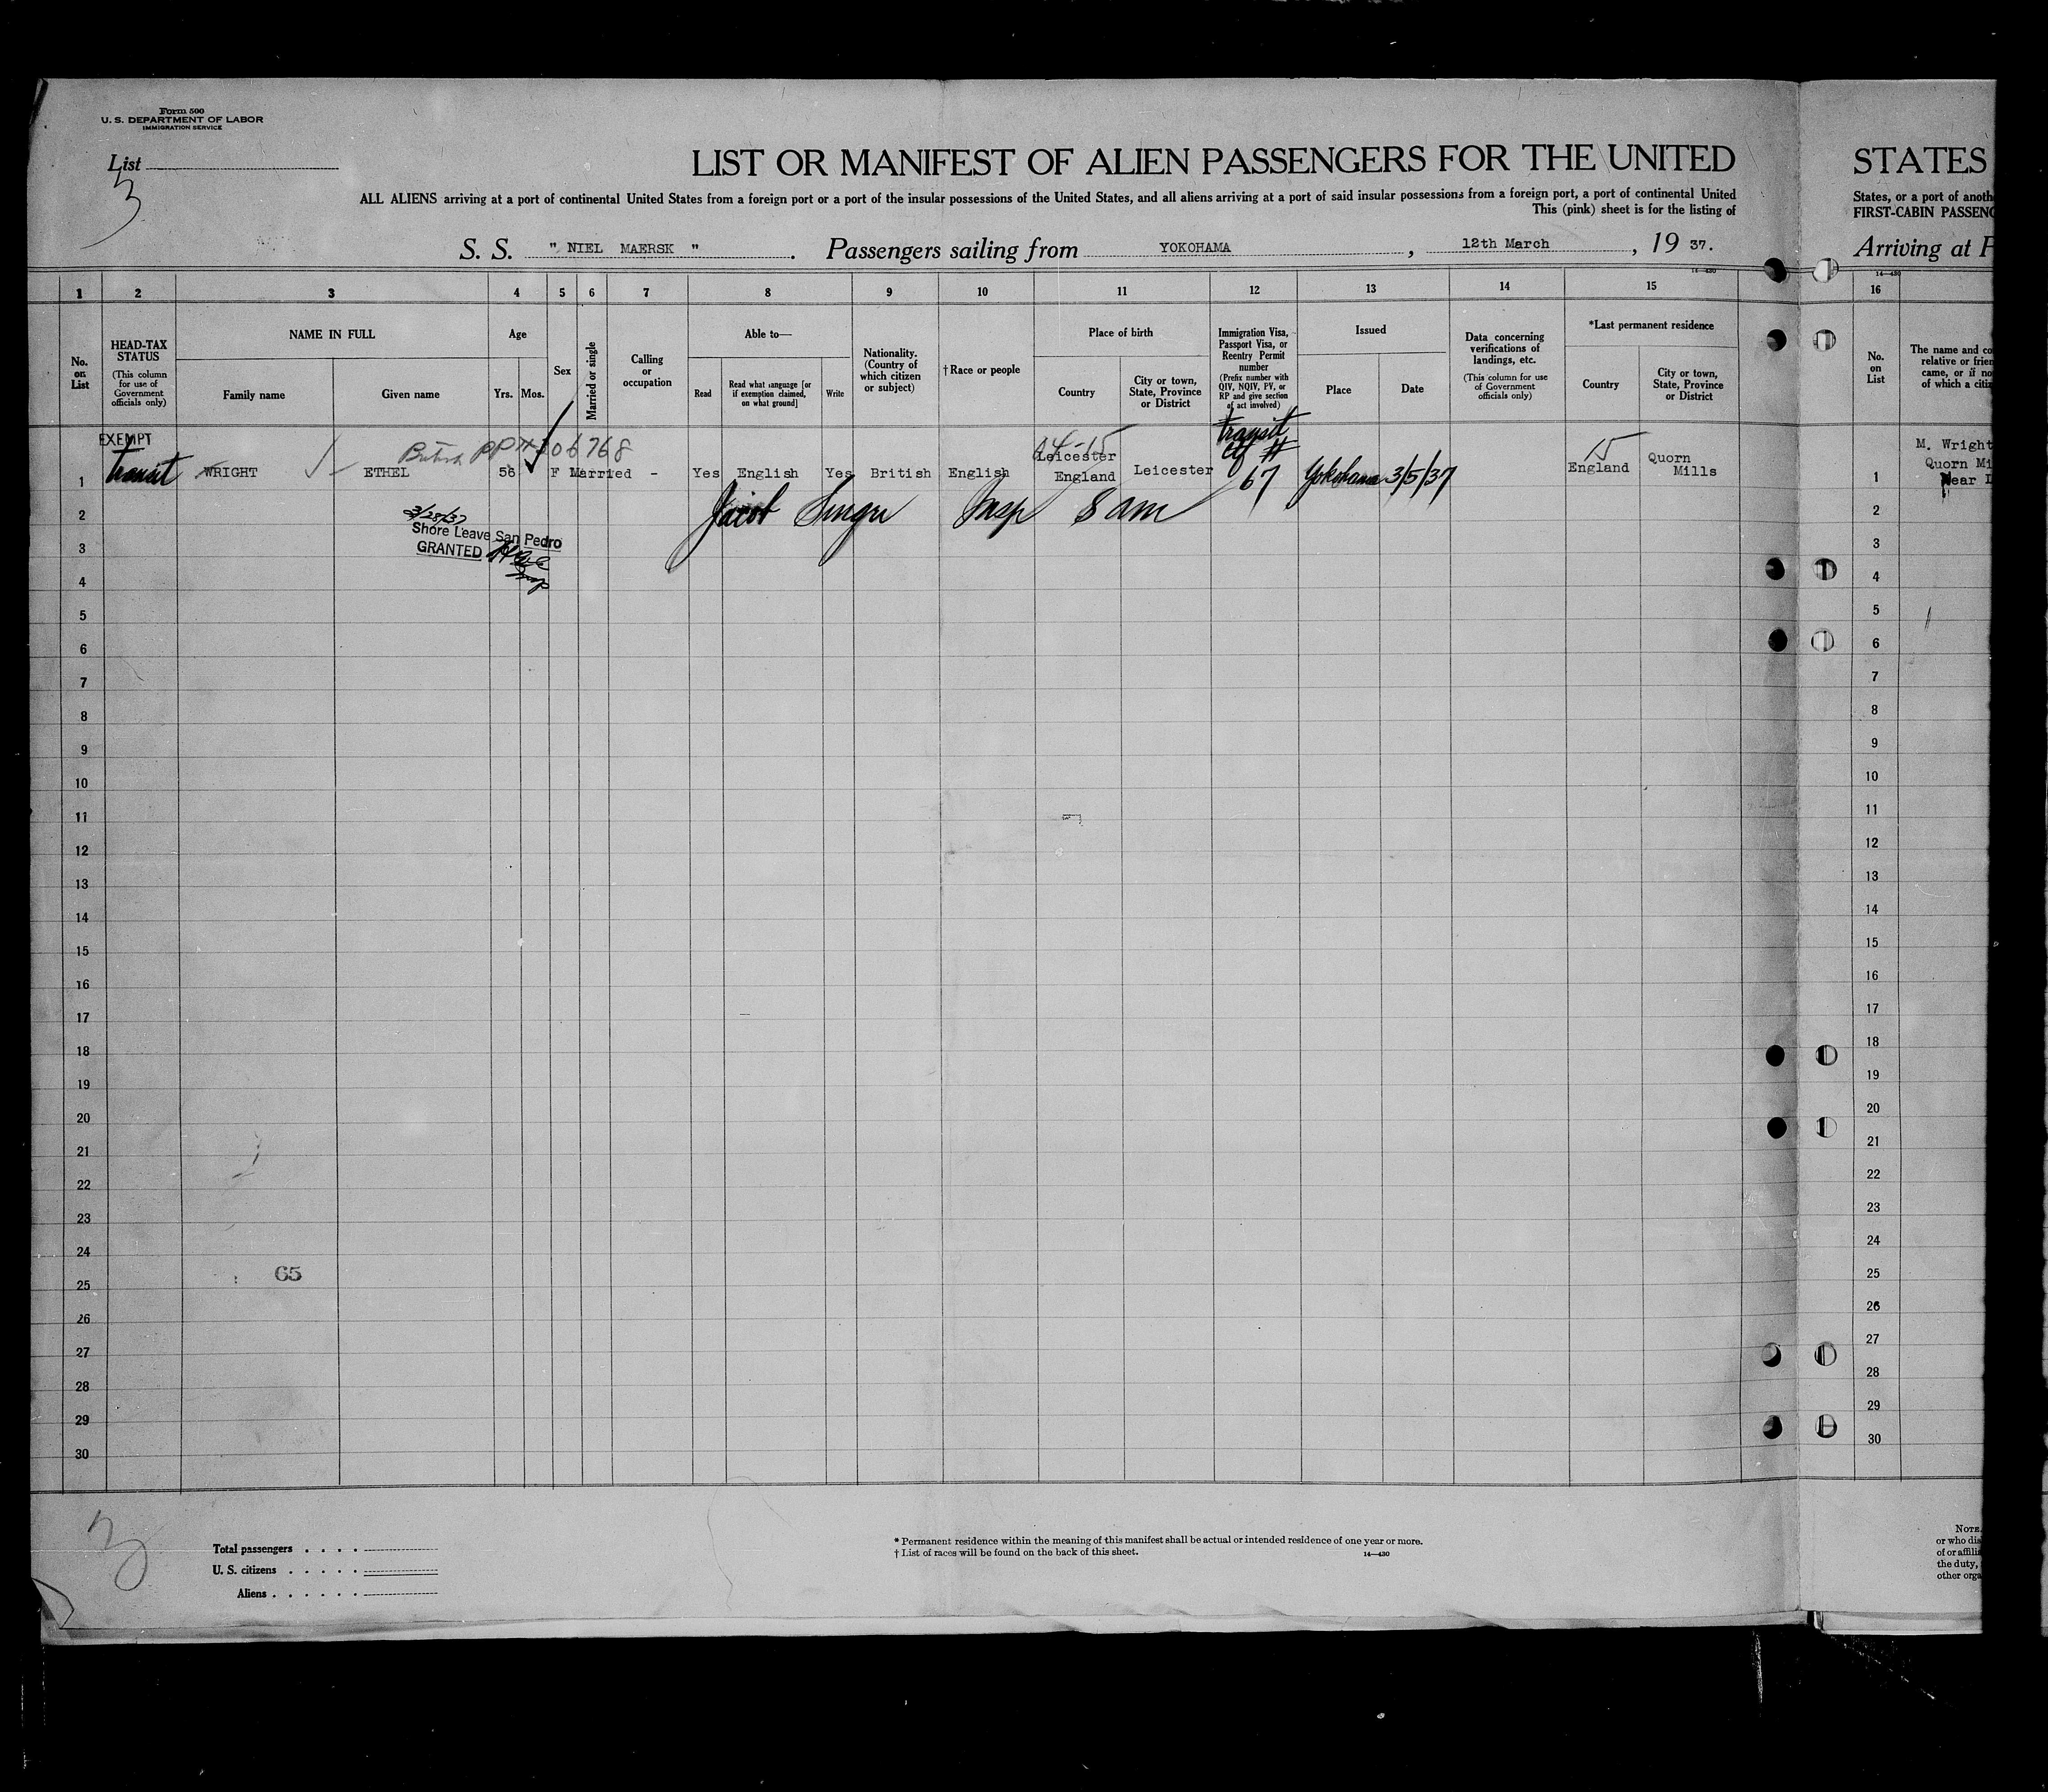 Form 500
U. S. DEPARTMENT OF LABOR
IMMIGRATION SERVICE
List
3
LIST OR MANIFEST OF ALIEN PASSENGERS FOR THE UNITED
ALL ALIENS arriving at a port of continental United States from a foreign port or a port of the insular possessions of the United States, and all aliens arriving at a port of said insular possessions from a foreign port, a port of continental United
This (pink) sheet is for the listing of
S. S. " NIEL MAERSK " . Passengers sailing from YOKOHAMA , 12th March , 19 37.
STATES
States, or a port of anoth
FIRST-CABIN PASSENG
Arriving at P
14—430
14—430
1 2 3 4 5 6 7 8 9 10 11 12 13 14 15 16
No. on List
HEAD-TAX STATUS
(This column for use of Government officials only)
NAME IN FULL
Family name
Given name
Age
Yrs. Mos.
Sex
Married or single
Calling or occupation
Able to—
Read
Read what language [or if exemption claimed, on what ground]
Write
Nationality. (Country of which citizen or subject)
†Race or people
Place of birth
Country
City or town, State, Province or District
Immigration Visa, Passport Visa, or Reentry Permit number
(Prefix number with QIV, NQIV, PV, or RP and give section of act involved)
Issued
Place
Date
Data concerning verifications of landings, etc.
(This column for use of Government officials only)
*Last permanent residence
Country
City or town, State, Province or District
No. on List
The name and co
relative or frien
came, or if no
of which a citiz
EXEMPT
transit
British PP# 306768
14-15
transit
Ctf #
67
15
1 WRIGHT ETHEL 56 F Married - Yes English Yes British English Leicester England Leicester Yokohama 3/5/37 England Quorn Mills
1 M. Wright
Quorn Mi
Near L
Jacob Singer Insp 8 am
3/28/37
Shore Leave San Pedro
GRANTED
Insp
2 2
3 3
4 4
5 5
6 6
7 7
8 8
9 9
10 10
11 11
12 12
13 13
14 14
15 15
16 16
17 17
18 18
19 19
20 20
21 21
22 22
23 23
24 24
65
25 25
26 26
27 27
28 28
29 29
30 30
3
Total passengers . . . .
U. S. citizens . . . . .
Aliens . . . . . .
* Permanent residence within the meaning of this manifest shall be actual or intended residence of one year or more.
† List of races will be found on the back of this sheet.
14—430
NOTE.
or who dis
of or affili
the duty,
other orga